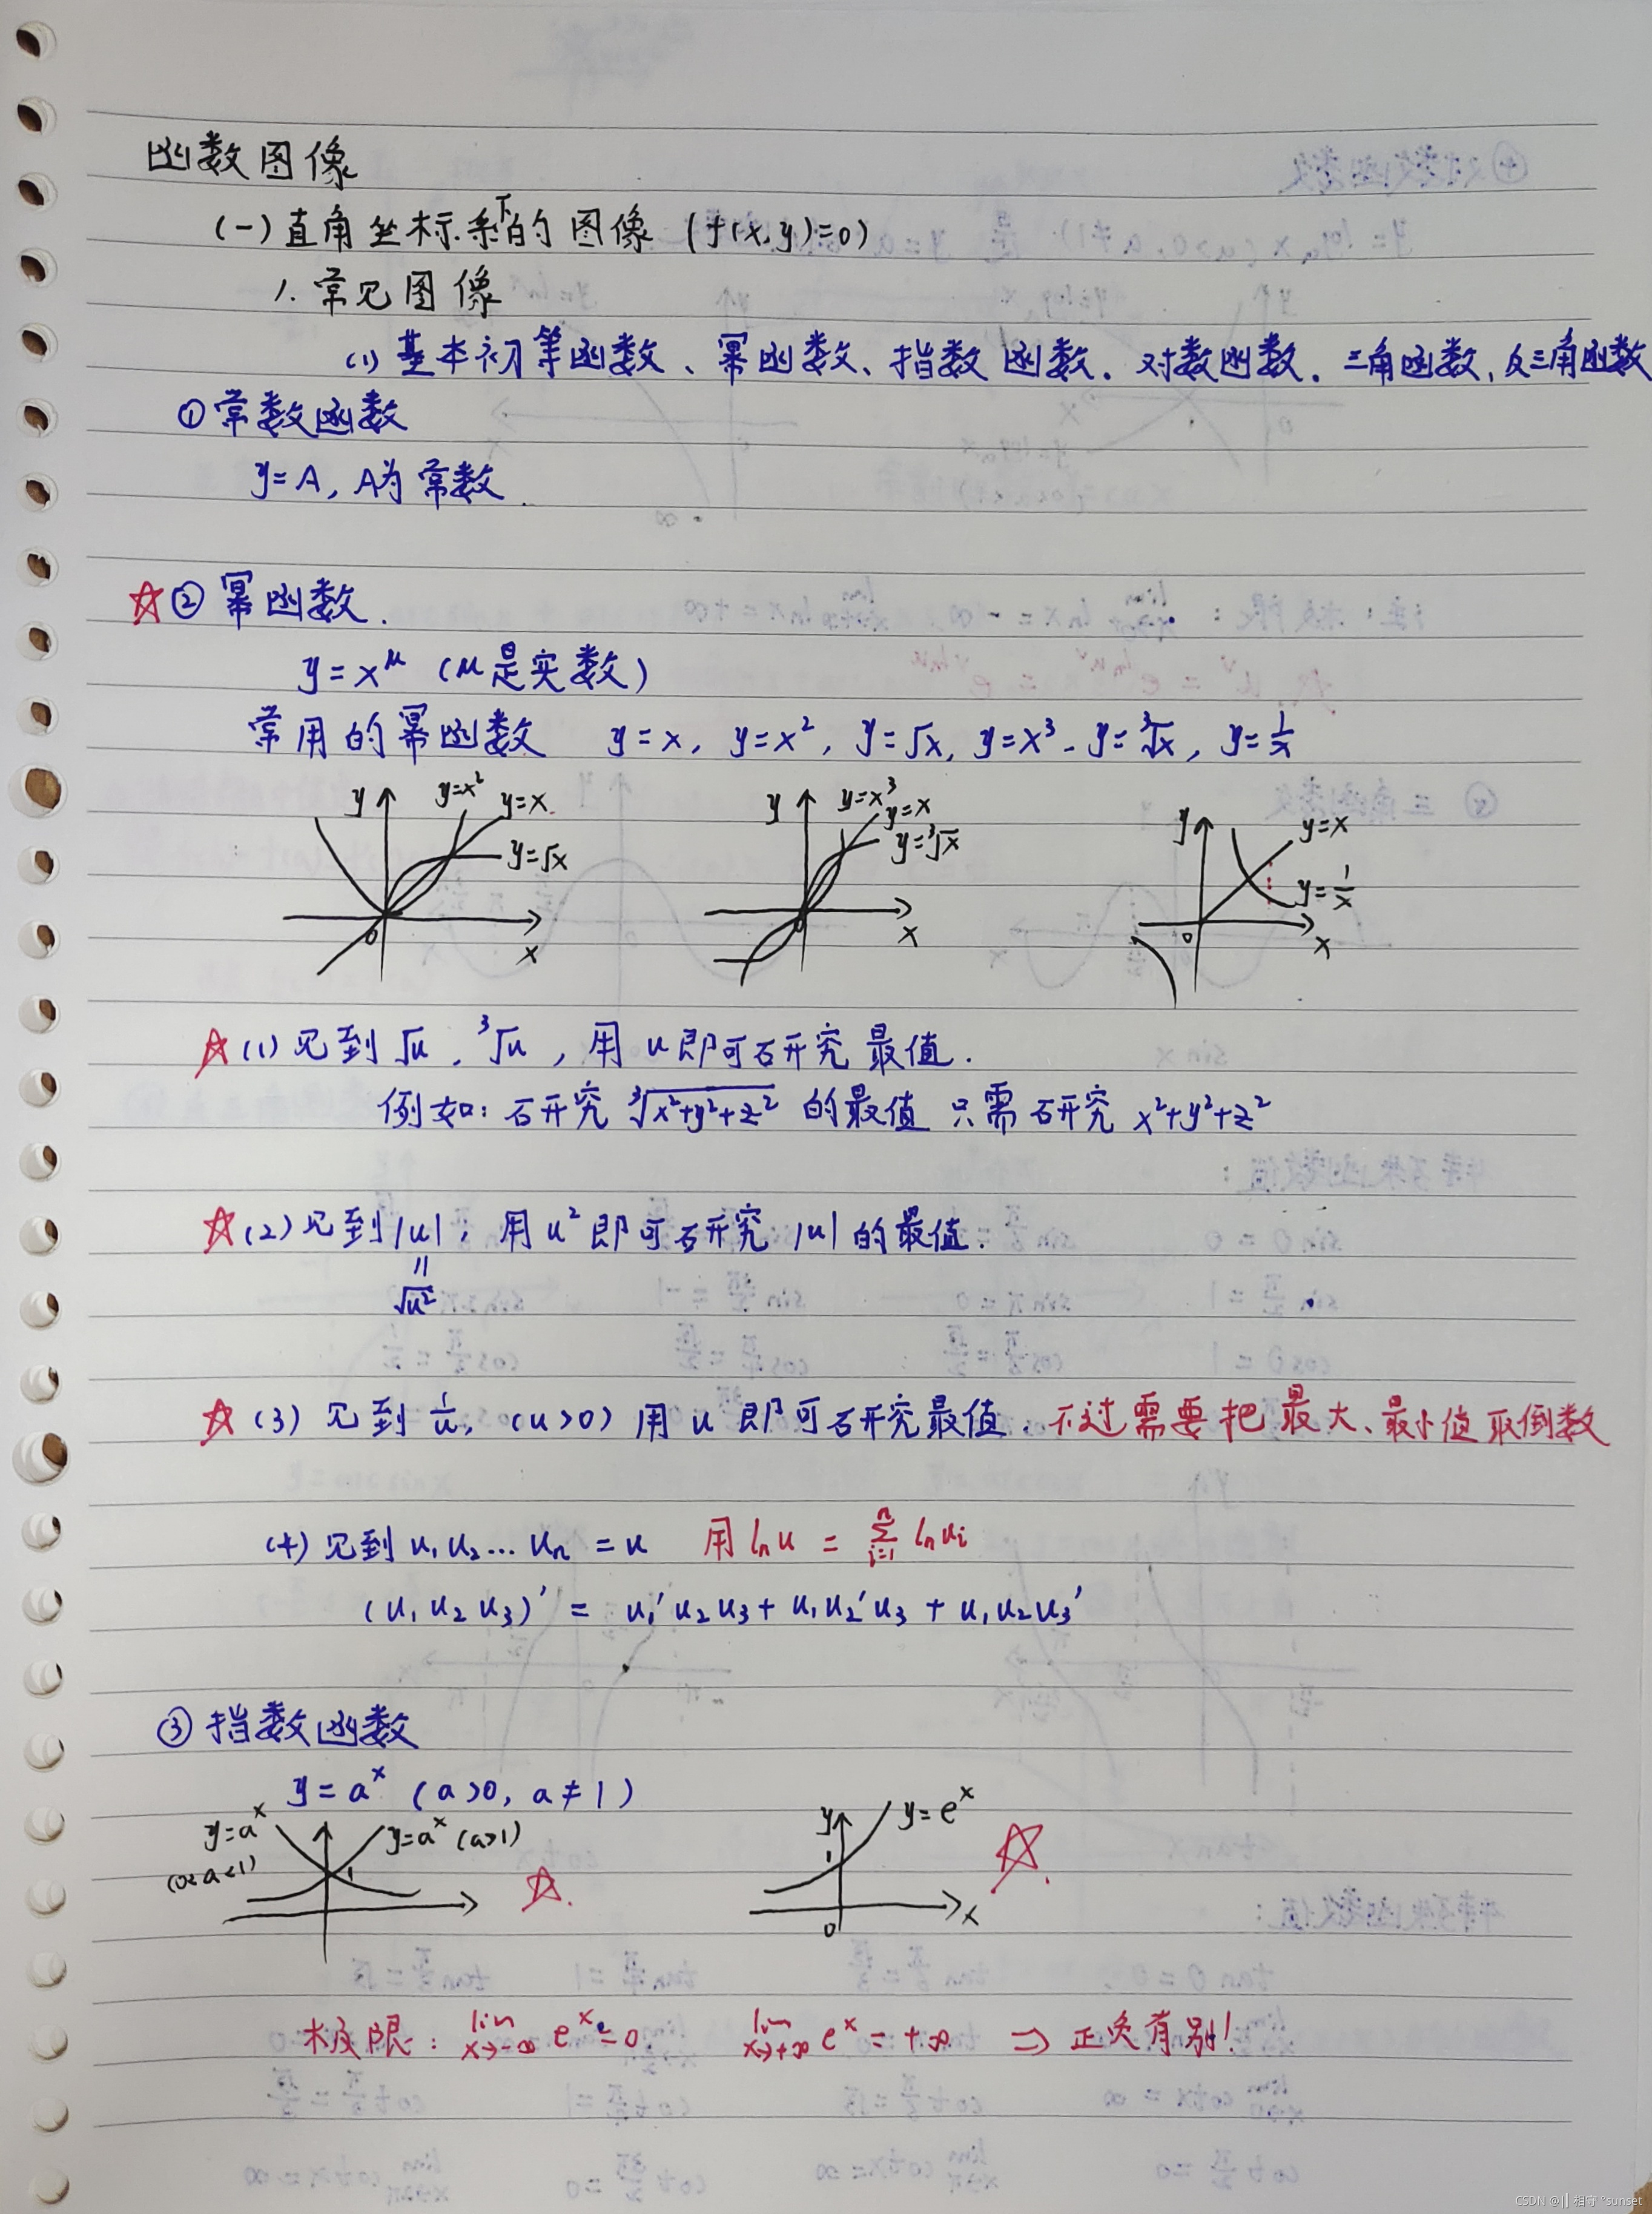 函数图像
(一)直角坐标系下的图像 (f(x,y)=0)
1. 常见图像
(1) 基本初等函数、幂函数、指数函数. 对数函数. 三角函数, 反三角函数
① 常数函数
y=A, A为常数.
☆② 幂函数.
y=x^μ (μ是实数)
常用的幂函数 y=x, y=x², y=√x, y=x³, y=∛x, y=1/x
y y=x² y=x y=√x 0 x
y y=x³ y=x y=∛x 0 x
y y=x y=1/x 0 x
☆(1) 见到√u, ∛u, 用u即可研究最值.
例如: 研究 ∛(x²+y²+z²) 的最值 只需研究 x²+y²+z²
☆(2) 见到|u|, 用u²即可研究|u|的最值.
=
√u²
☆(3) 见到1/u, (u>0) 用u即可研究最值. 不过需要把最大、最小值取倒数
(4) 见到 u₁u₂...uₙ = u 用 ln u = Σ_{i=1}^{n} ln uᵢ
(u₁u₂u₃)' = u₁'u₂u₃ + u₁u₂'u₃ + u₁u₂u₃'
③ 指数函数
y=a^x (a>0, a≠1)
y=a^x (0<a<1) y=a^x (a>1) 1 ☆.
y y=e^x 1 0 x ☆.
极限: lim_{x→-∞} e^x=0. lim_{x→+∞} e^x=+∞ ⇒ 正负有别!
CSDN @||相守°sunset